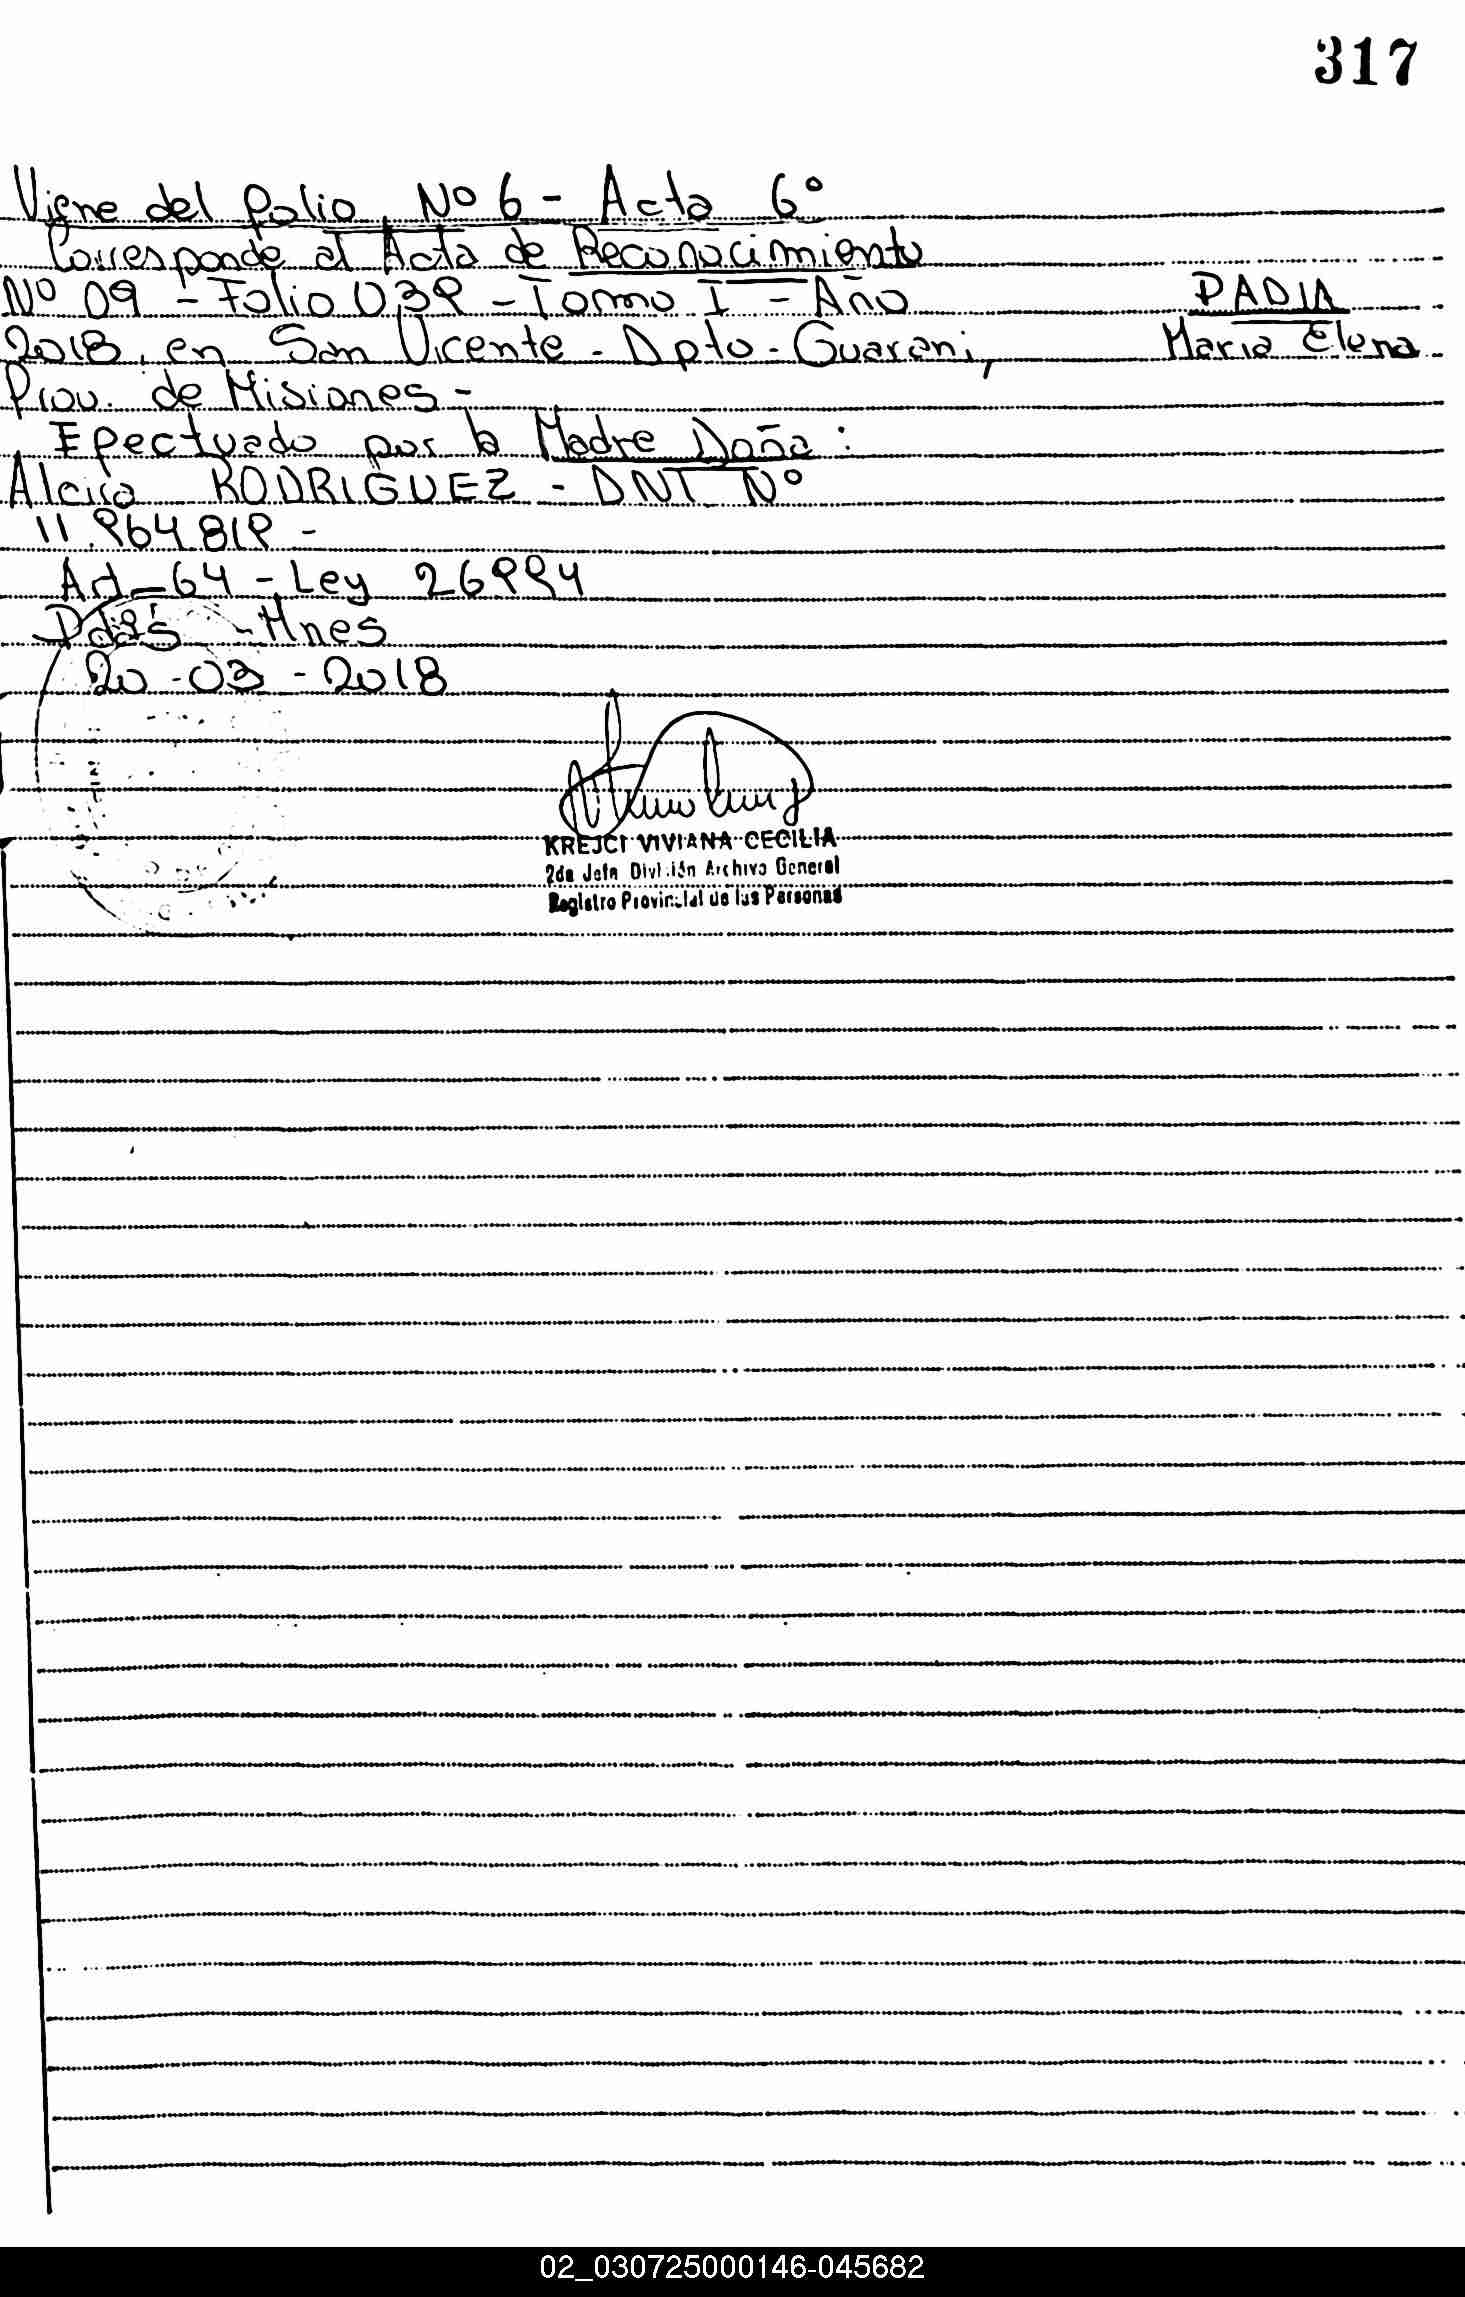 317
Viene del folio Nº 6 - Acta 6º
Corresponde al Acta de Reconocimiento
Nº 09 - Folio 039 - Tomo I - Año
PADIA
2018, en San Vicente - Dpto - Guarani,
Maria Elena
Prov. de Misiones -
Efectuado por la Madre Doña:
Alcira RODRIGUEZ - DNI Nº
11.964.819 -
Art - 64 - Ley 26994
Pdas - Mnes
20 - 03 - 2018
KREJCI VIVIANA CECILIA
2da Jefa División Archivo General
Registro Provincial de las Personas
02_030725000146-045682